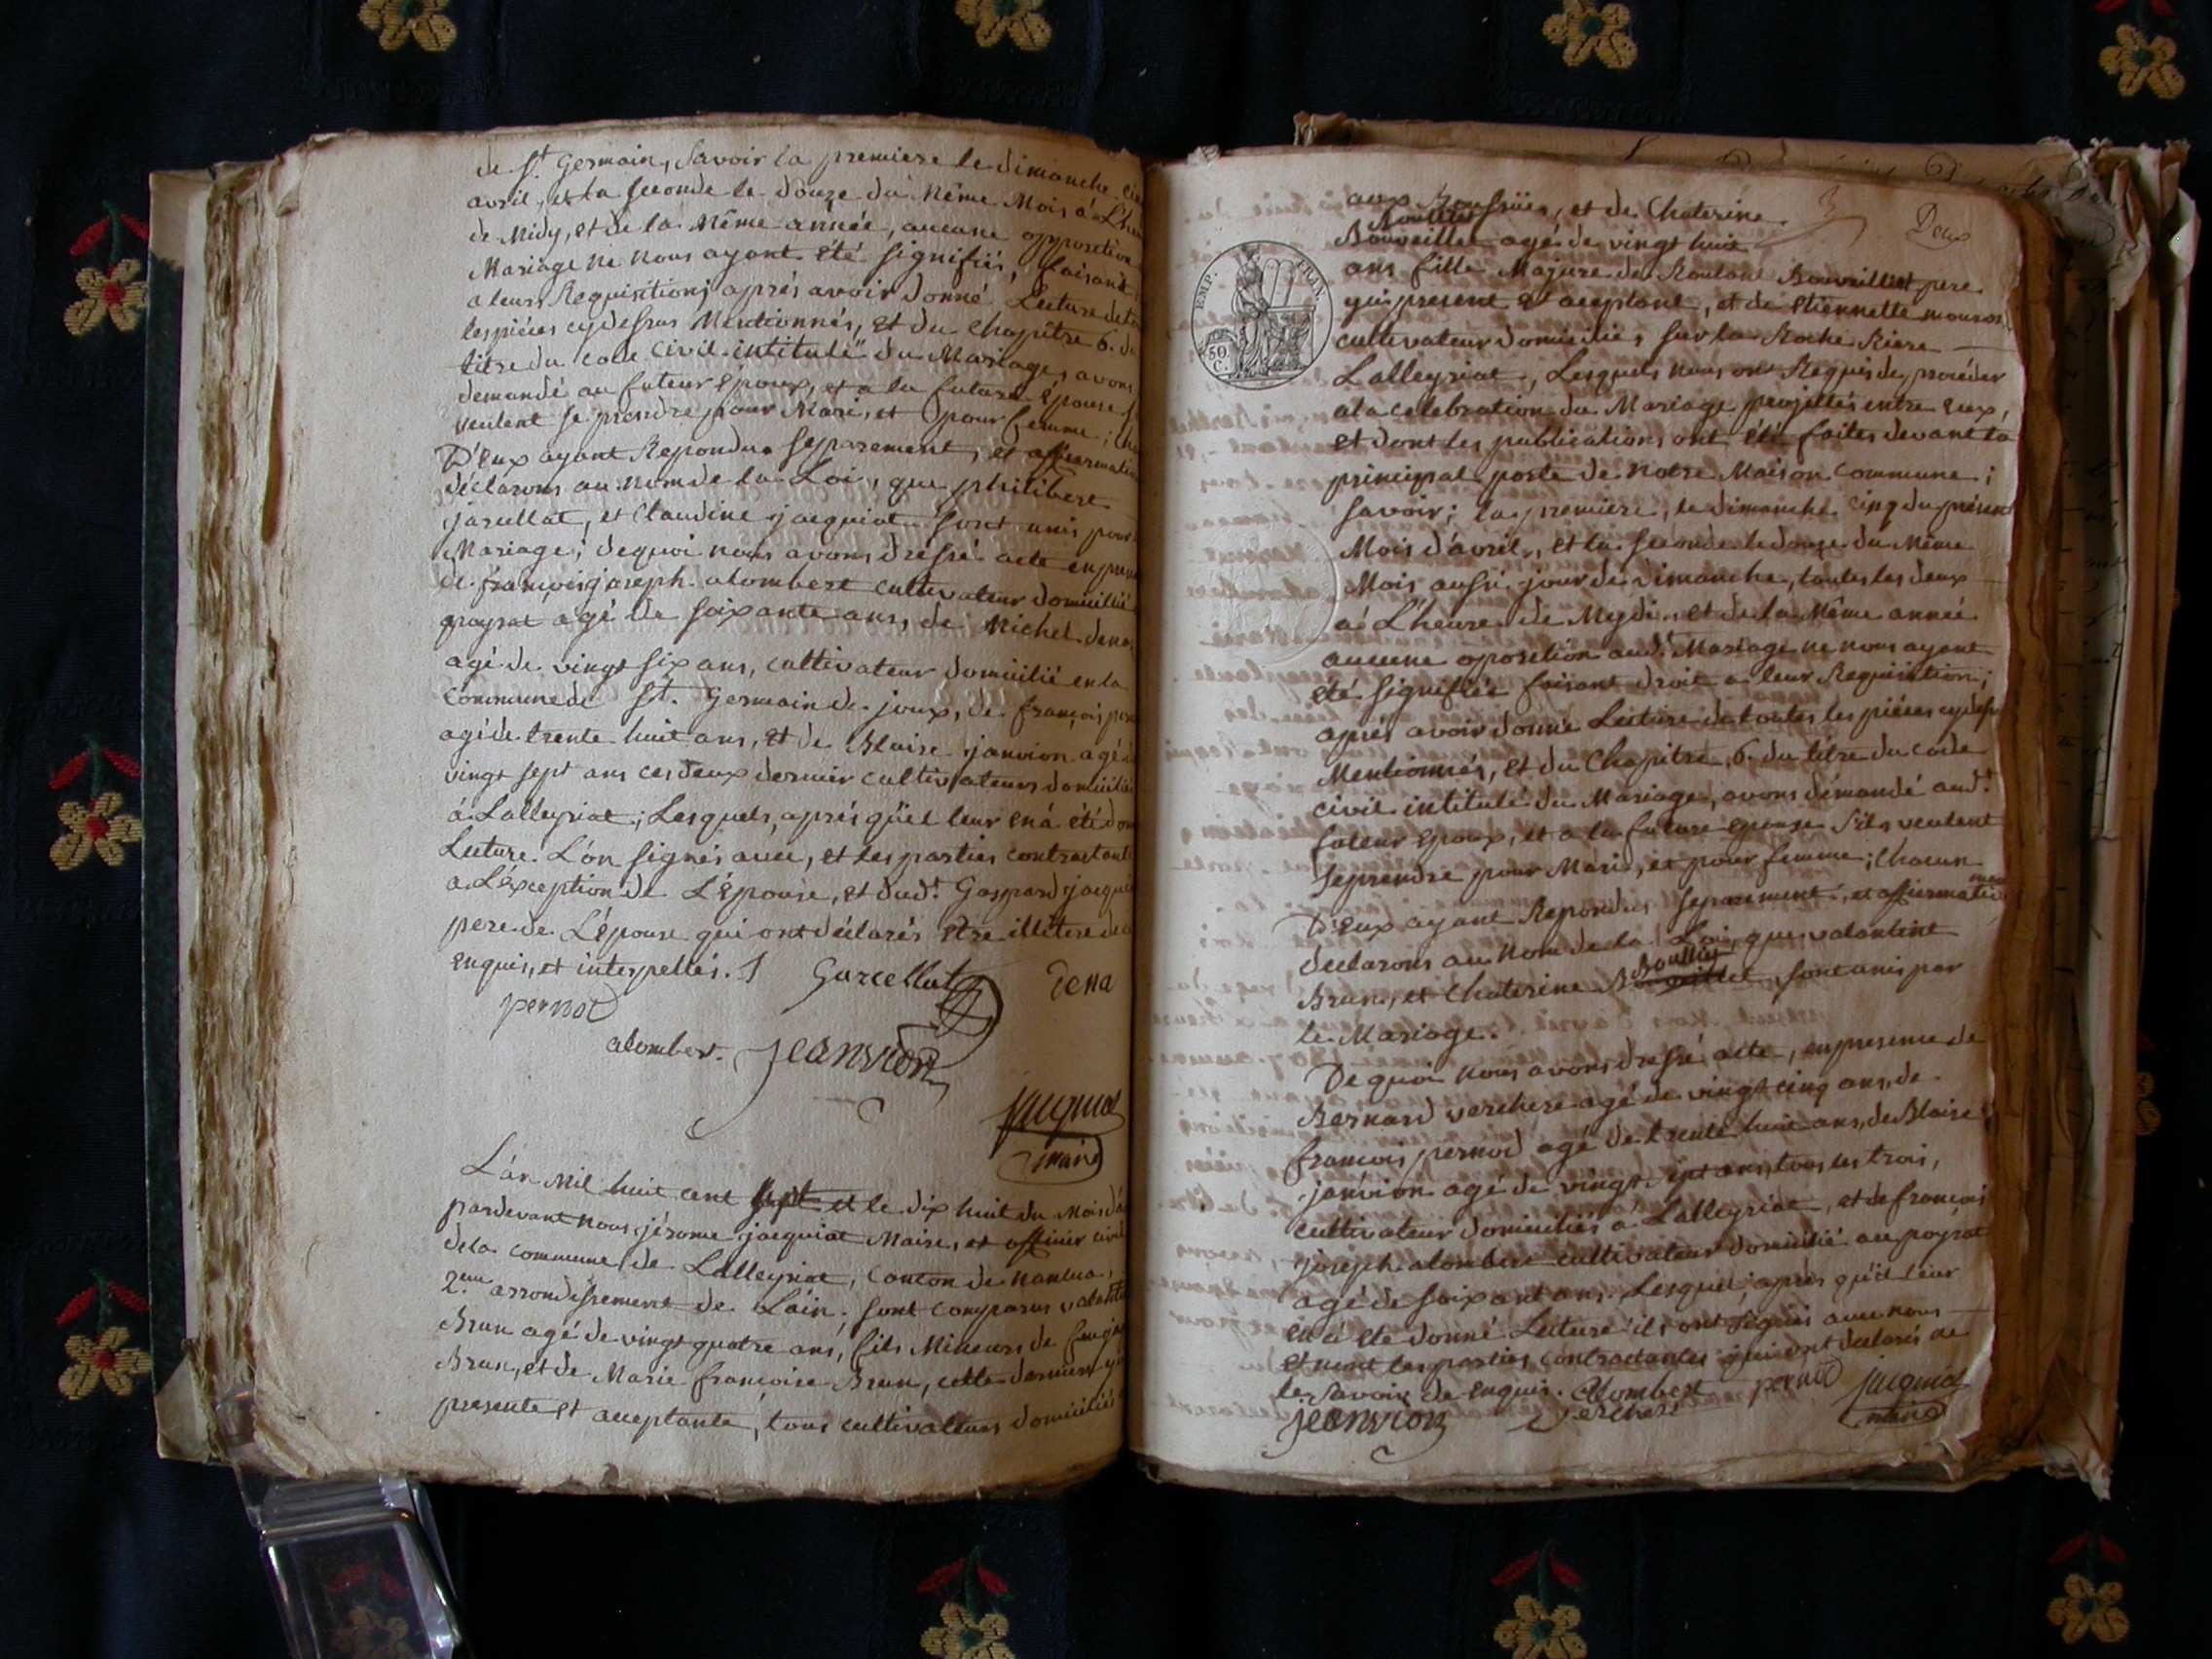 de St. Germain, Savoir la premiere le dimanche
avril, et la seconde le douze du Même Mois, á L'heu
de Midy, et de la Même année, aucune opposition
Mariage ne nous ayant été signifiés, faisant
a leurs Requisitions aprés avoir donné Lecture de to
les piéces cydessus Mentionnés, et du chapitre 6. du
titre du code civil intitulé" du Mariage, avons
demandé au futur époux, et a la future Épouse s
veulent se prendre pour Mari, et pour femme; cha
D'eux ayant Repondu separement, et affirmative
déclarons au nom de la Loi, que philibert
jarullat, et Claudine jacquiot sont unis pour
Mariage; dequoi nous avons dréssé acte en pre
de françois joseph alombert cultivateur domicilié
poyzat agé de soixante ans, de Michel dena
agé de vingt six ans, cultivateur domicilié en la
Commune de St. Germain de joux, de françois per
agé de trente huit ans, et de Blaise janvion agé d
vingt sept ans ces deux dernier cultivateurs domicilié
á Lalleyriat; Lesquels, aprés qu'il leur en á été don
Lecture. L'on signés avec, et les parties contractant
a L'éxception de L'Épouse, et dudt. Gaspard jacqui
pere de L'épouse qui ont déclarés être illitere de
enquis, et interpellés. Garcellat dena
pernod
alombert. jeanvion
jacquiot
maire
L'an Mil huit cent sept et le dix huit du Mois d'a
pardevant nous jérome jacquiot Maire, et officier civil
de la commune de Lalleyriat, Canton de nantua,
2.eme arrondissement de L'ain; sont comparus valenti
Brun agé de vingt quatre ans, fils Mineurs de feu ja
Brun, et de Marie françoise Brun, cette derniere y
presente et acceptante, tous cultivateurs domicilié
Deux
aux et de Chaterine
Boullet
Bouveillet agé de vingt huit
ans fille Majure de Roulant Bouveillet pere
yci present et aceptant, et de Etiennette
cultivateur domiciliés sur la Roche Riere
EMP. FRAN.
50 C.
Lalleyriat, Lesquels nous ont Requis de procéder
a la celebration du Mariage projettés entre eux,
et dont les publications ont été faites devant la
principal porte de notre Maison Commune;
savoir; la premiere, le dimanche cinq du présent
Mois d'avril, et la seconde le douze du Même
Mois aussi jour de dimanche, toutes les deux
á L'heure de Meydi, et de la Même année
aucune oposition audt. Mariage ne nous ayant
été signifiée faisant droit a leur Requisition;
aprés avoir donné Lecture de toutes les piéces cydess
Mentionnés, et du Chapitre, 6. du titre du code
civil intitulé du Mariage, avons démandé audt.
futeur epoux, et a la future epouse s'ils veulent
seprendre pour Mari, et pour femme; chacun
D'eux ayant Repondus separement, et affirmative
ment
declarons au Nom de la Loi, que valantint
Boullet
Brun, et Chaterine Bouveillet, sont unis par
le Mariage.
De quoi nous avons dressé acte, en presence de
Bernard verchere agé de vingt cinq ans, de
françois pernod agé de trente huit ans, de Blaise
janvion agé de vingt sept ans, tous les trois,
cultivateur domiciliés á Lalleyriat, et de françois
joseph alombert cultivateur domicilié au poyzat
agé de soixant ans. Lesquel, aprés qu'il leur
en á eté donné Lecture ils ont signés avec nous
et nont les parties contractantes qui ont declarés ne
le savoir de enquis. Alombert pernod jacquiot
jeanvion verchere maire